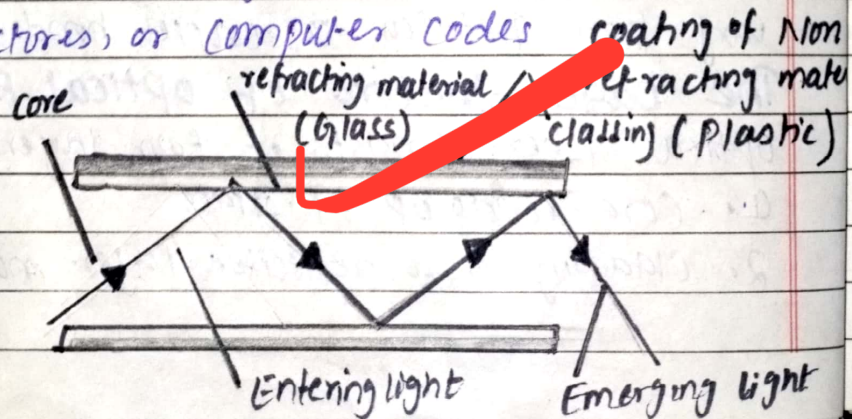 or computer codes coating of Non
refracting material
core
(Glass)
cladding (Plastic)
Entering light
Emerging light